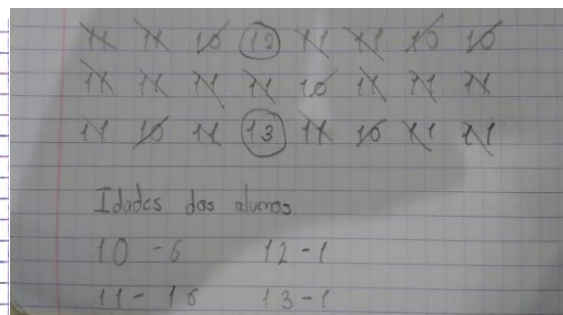 11 11 10 12 11 11 10 10
11 11 11 11 10 11 11 11
11 10 11 13 11 10 11 11
Idades dos alunos
10 - 6 12 - 1
11 - 16 13 - 1